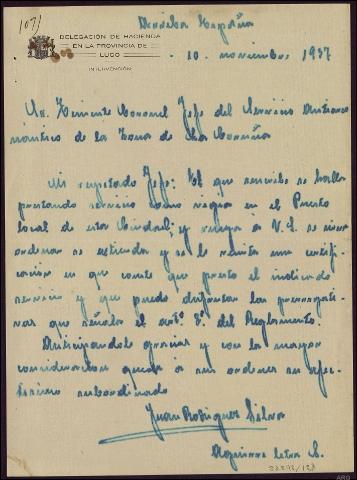 107)
DELEGACIÓN DE HACIENDA
EN LA PROVINCIA DE
LUGO
INTERVENCIÓN
Arriba España
10 noviembre 1937
Sr. Teniente Coronel Jefe del Servicio Antiaero-
náutico de la Zona de La Coruña
Mi respetado Jefe: El que suscribe se halla
prestando servicio como en el Puesto
local de esta Ciudad, y ruega a V.S. se sirva
ordenar se extienda y se le remita una certifi-
cación en que conste que presta el indicado
servicio y que puede disfrutar las prerrogati-
vas que señala el artº. 3º. del Reglamento.
Anticipándole gracias y con la mayor
consideración queda a sus órdenes su afec-
tísimo subordinado
Juan Rodríguez Silva
letra S.
ARG